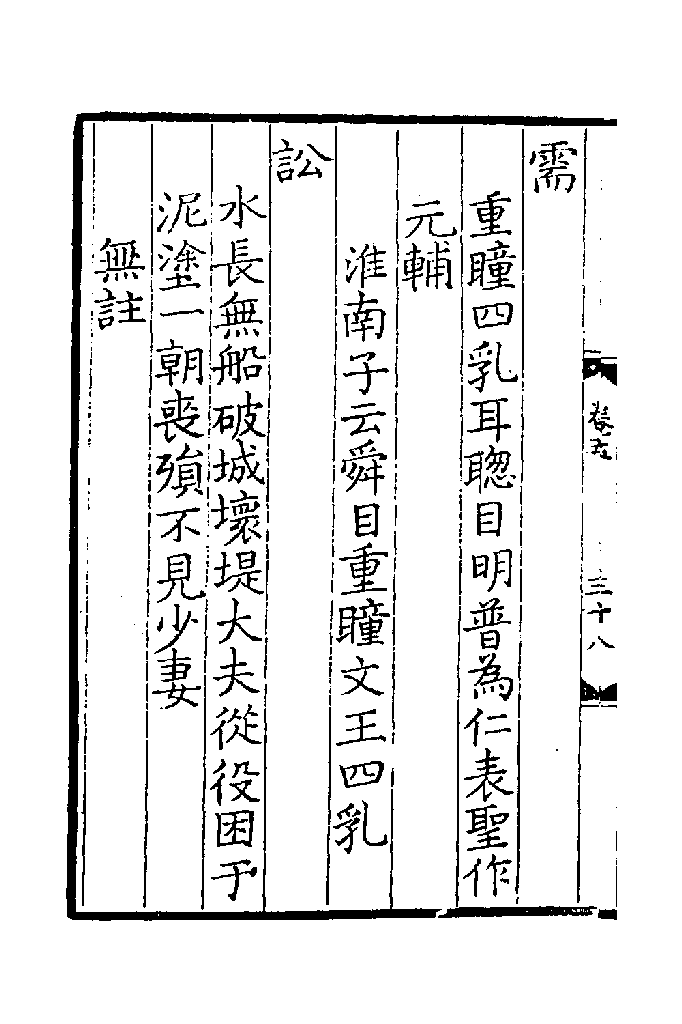 卷五
三十八
需
重瞳四乳耳聦目明普為仁表聖作
元輔
淮南子云舜目重瞳文王四乳
訟
水長無船破城壞堤大夫從役困于
泥塗一朝喪殞不見少妻
無註